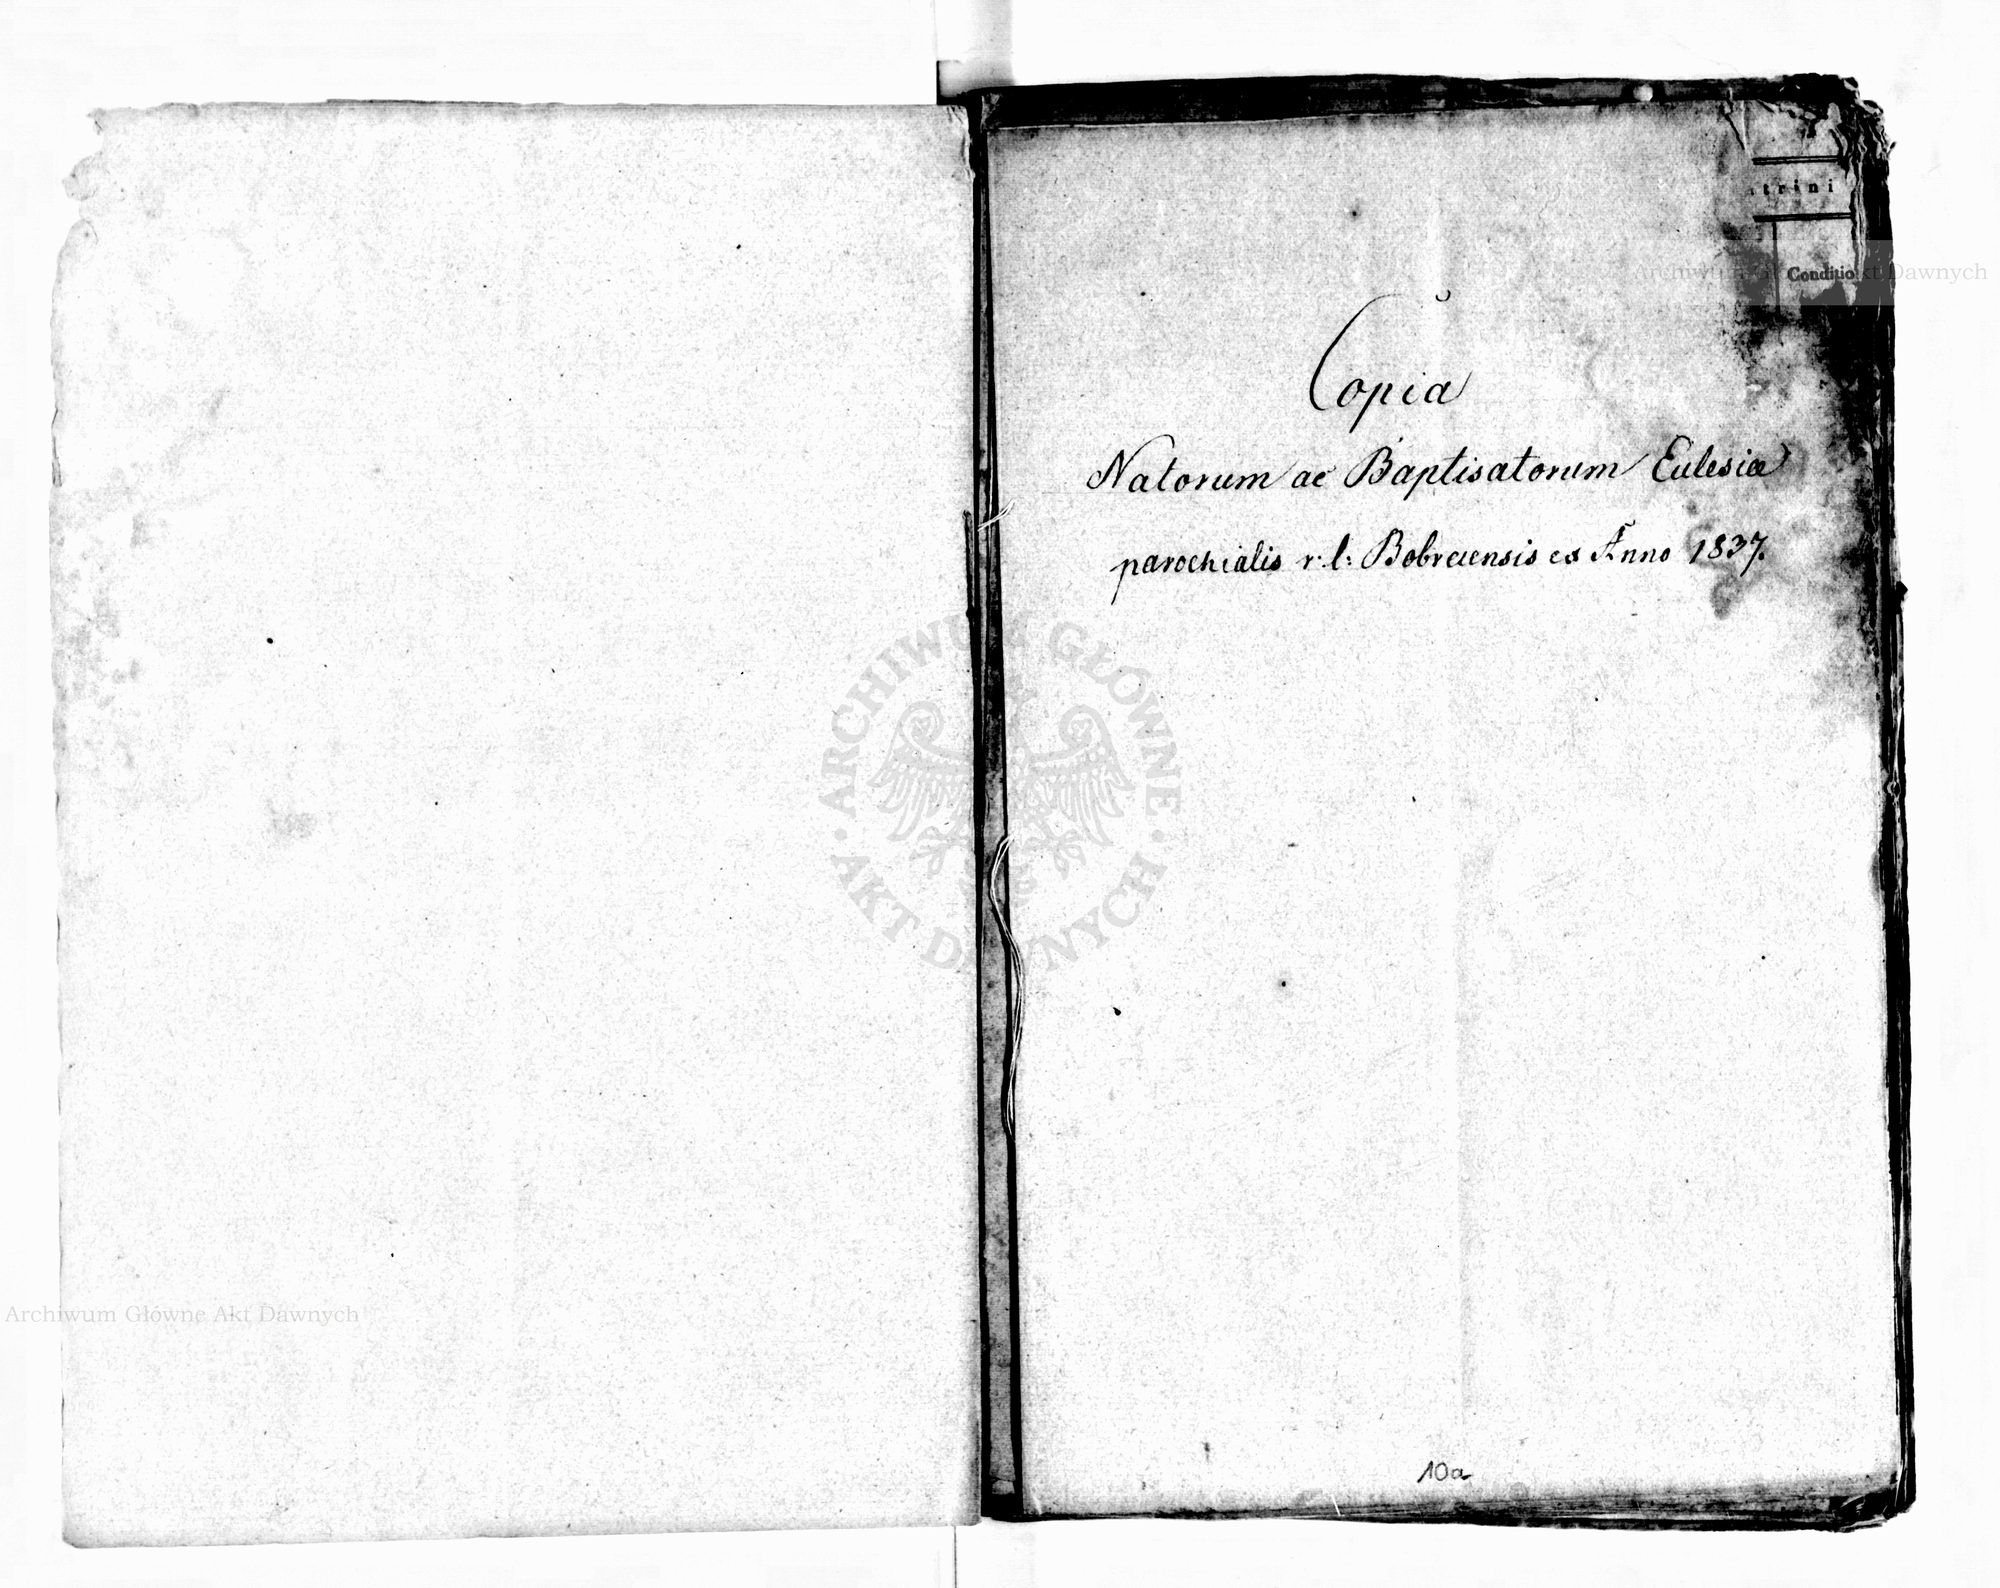 trini
Conditio
Copia
Natorum ac Baptisatorum Eclesiæ
parochialis r: l: Bobrcensis ex Anno 1837.
10a
Archiwum Główne Akt Dawnych
Archiwum Główne Akt Dawnych
ARCHIWUM GŁÓWNE
· AKT DAWNYCH ·